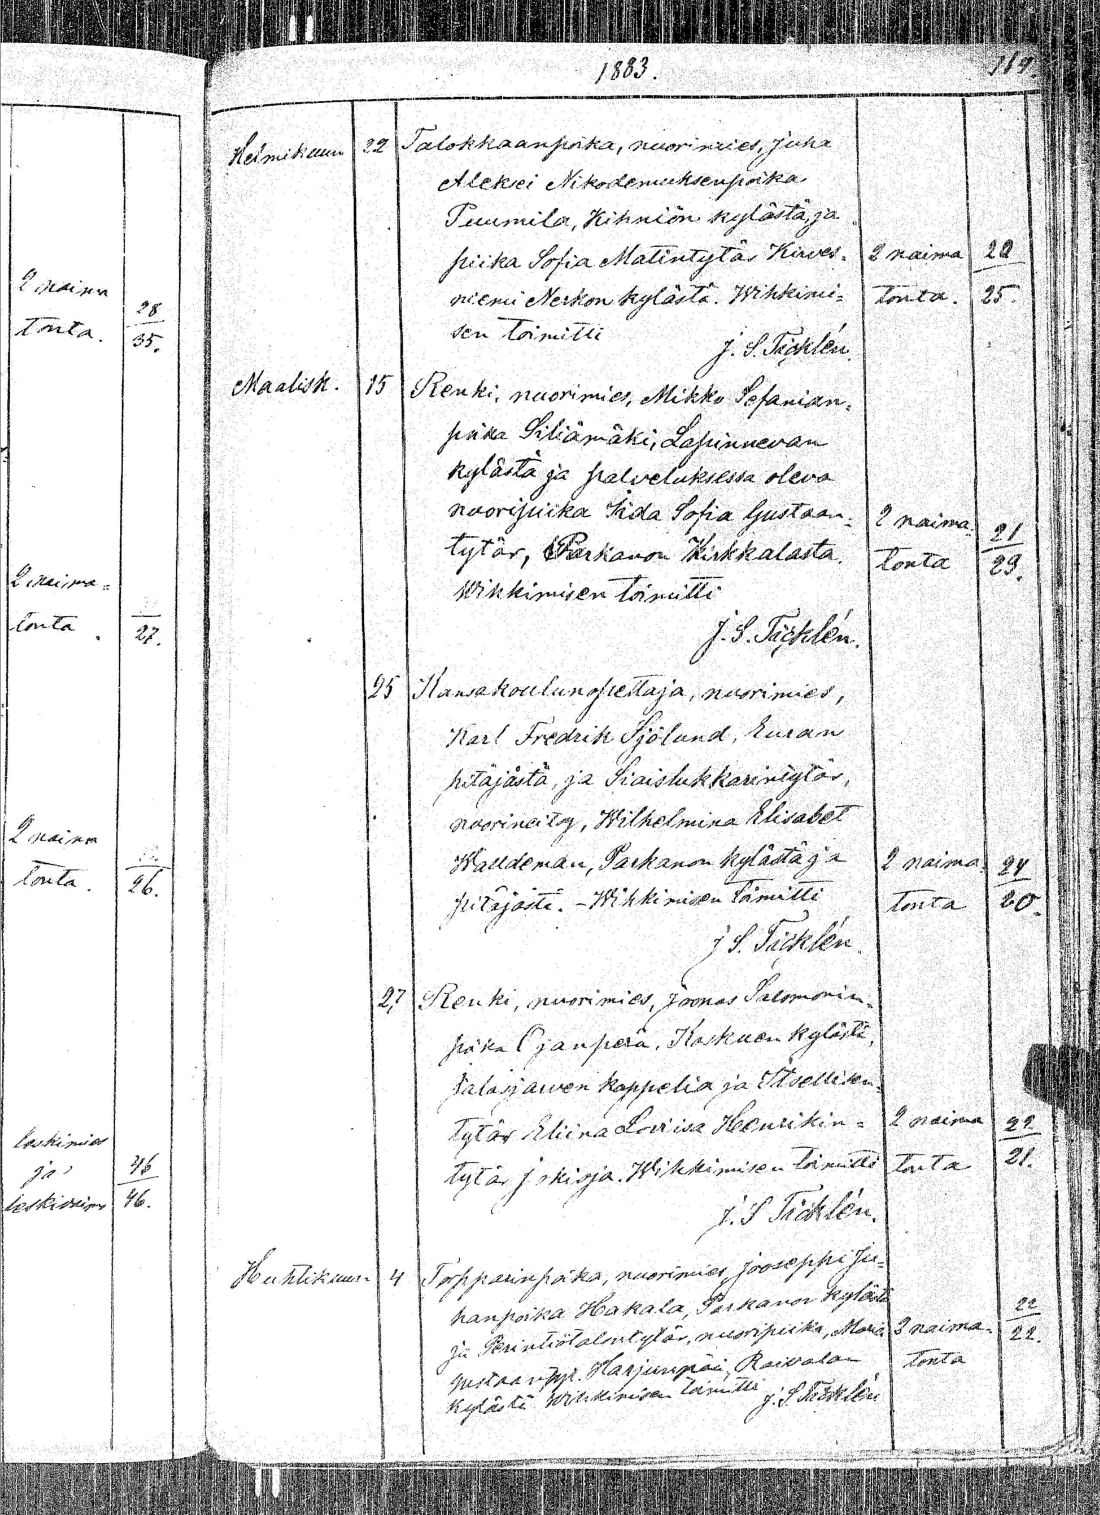 2 naima
tonta.
28
35.
2 naima=
tonta.
27.
2 naima
tonta.
26.
leskimies
ja
leskivaimo
46
46.
1883.
Helmikuun 22 Talokkaanpoika, nuorimies, Juha
Aleksei Nikodemuksenpoika
Puumila, Kihniön kylästä, ja
piika Sofia Matintytär Kirves= 2 naima 22
niemi Nerkon kylästä. Wihkimi= tonta. 25.
sen toimitti
J. S. Täcklén.
Maalisk. 15 Renki, nuorimies, Mikko Sefanian=
poika Siliämäki, Lapinnevan
kylästä ja palveluksessa oleva
nuoripiika Iida Sofia Gustaan= 2 naima= 21
tytär, Parkanon Kirkkalasta. tonta 29.
Wihkimisen toimitti
J. S. Täcklén.
25 Kansakoulunopettaja, nuorimies,
Karl Fredrik Sjölund, Euran
pitäjästä, ja Siaislukkarintytär,
nuorineitsy, Wilhelmina Elisabet
Walldeman, Parkanon kylästä ja 2 naima= 24
pitäjästä. - Wihkimisen toimitti tonta 20.
J. S. Täcklén.
27 Renki, nuorimies, Joonas Salomonin=
poika Ojanperä, Koskuen kylästä,
Jalasjärven kappelia ja Itsellisen=
tytär Eliina Loviisa Henrikin= 2 naima 22
tytär Wihkimisen toimitti tonta 21.
J. S. Täcklén.
Huhtikuun 4 Torpparinpoika, nuorimies, Jooseppi Ju=
hanpoika Hakala, Parkanon kylästä 22
ja Perintötalontytär, nuoripiika, Maria 2 naima= 22.
Gustaantyt. Harjunpää, Raivalan tonta
kylästä Wihkimisen toimitti J. S. Täcklén